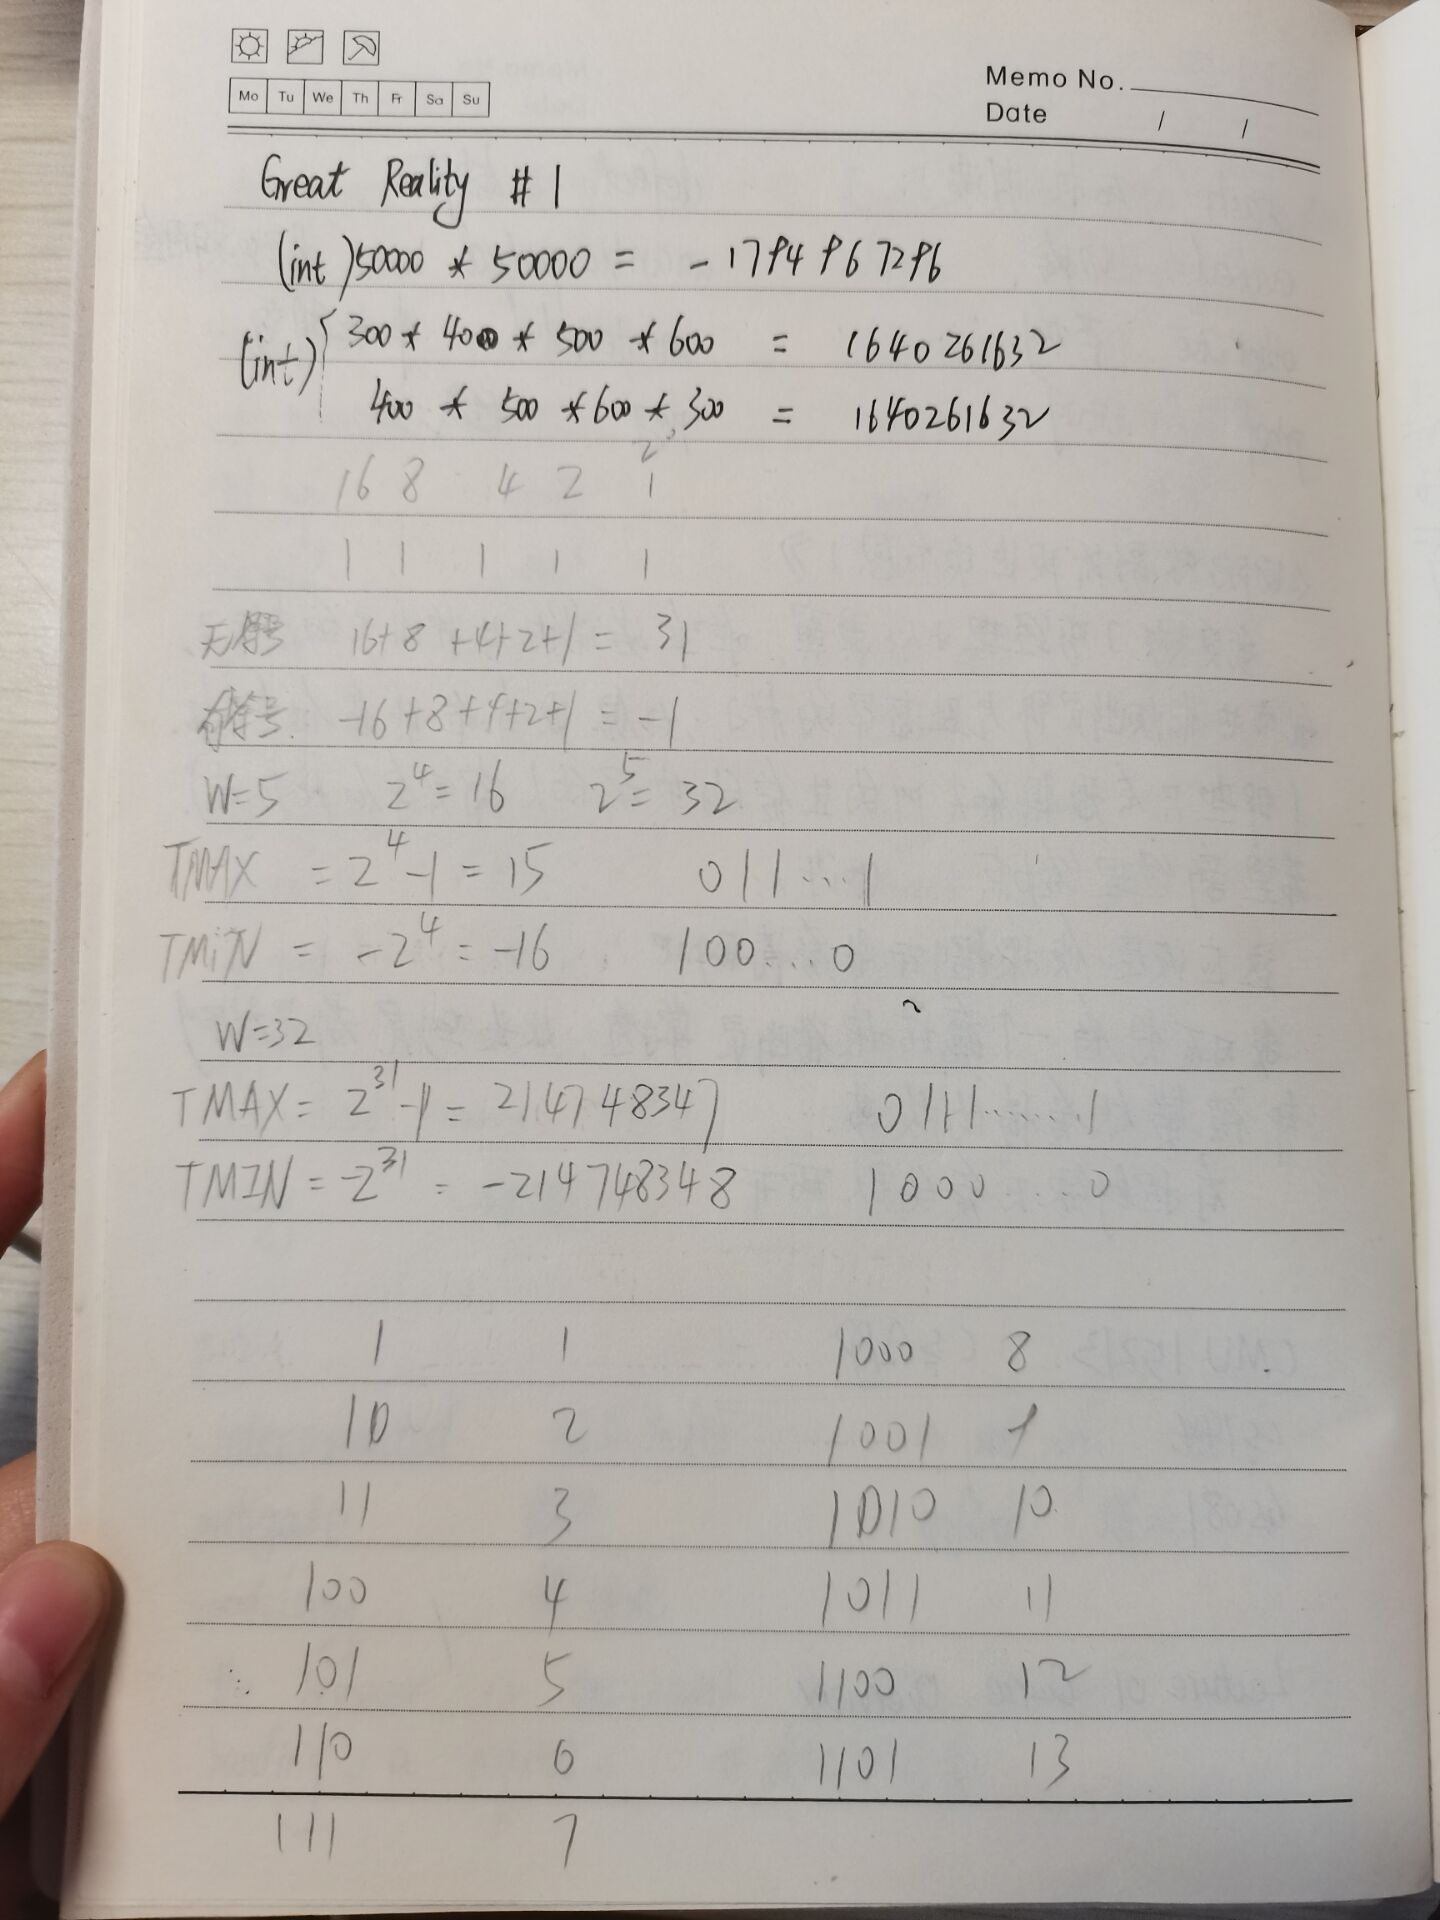 Mo Tu We Th Fr Sa Su
Memo No.
Date / /
Great Reality #1
(int)50000 * 50000 = -1794967296
(int) { 300 * 400 * 500 * 600 = 1640261632
400 * 500 * 600 * 300 = 1640261632
16 8 4 2 1
1 1 1 1 1
无符号 16+8+4+2+1 = 31
有符号 -16+8+4+2+1 = -1
W=5 2^4=16 2^5=32
TMAX = 2^4-1 = 15 011...1
TMiN = -2^4 = -16 100...0
W=32
TMAX = 2^31-1 = 2147483647 0111.......1
TMIN = -2^31 = -2147483648 1000....0
1 1 1000 8
10 2 1001 9
11 3 1010 10
100 4 1011 11
101 5 1100 12
110 6 1101 13
111 7